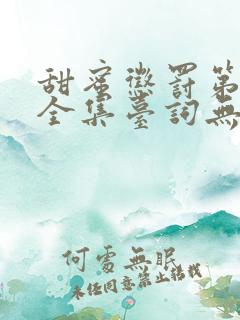 甜蜜懲罰第
全集臺詞無
何處無眠
未经同意禁止转载